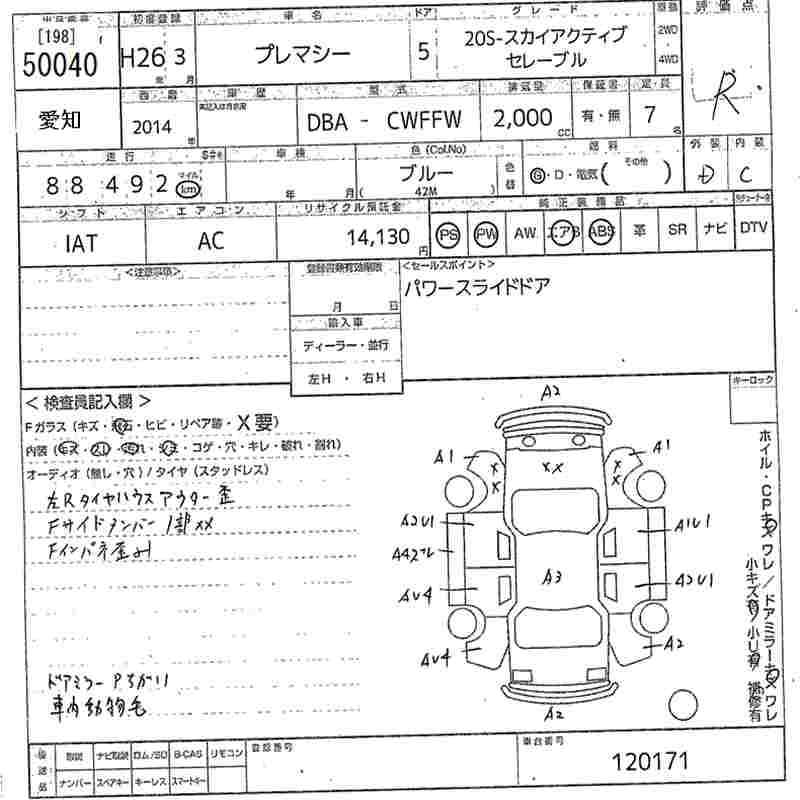 初度登録 車名 ドア グレード 評価点
[198]
50040 H26 3 プレマシー 5 20S-スカイアクティブ セレーブル 2WD 4WD R
年 月
愛知 2014 年 車歴 型式 DBA - CWFFW 排気量 2,000 cc 保証書 有・無 定員 7 名
走行 車検 色(Col.No) 燃料 外装 内装
88492 マイル km 年 月 ブルー ( 42M ) 色替 G・D・電気( その他 ) D C
シフト エアコン リサイクル預託金 純正装備品
IAT AC 14,130 円 PS PW AW エアB ABS 革 SR ナビ DTV
<注意事項> 登録書類有効期限 <セールスポイント>
月 日 パワースライドドア
輸入車
ディーラー・並行
左H ・ 右H
キーロック
<検査員記入欄>
Fガラス(キズ・飛石・ヒビ・リペア跡・X要)
内装(キズ・汚れ・コゲ・穴・キレ・破れ・割れ)
オーディオ(無し・穴)/タイヤ(スタッドレス)
左Rタイヤハウスアウター歪
Fサイドメンバー1部XX
Fインパネ歪
ドアミラー
車内動物毛
A2
A1 XX A1
A2U1 A1U1
A3
AU4 A2U1
AU4 A2
A2
ホイル・CPキズワレ/ドアミラーキズワレ
小キズ有/小U有 補修有
後送品 取説 ナビ取説 ロム/SD B-CAS リモコン 登録番号 車台番号
ナンバー スペアキー キーレス スマートキー 120171